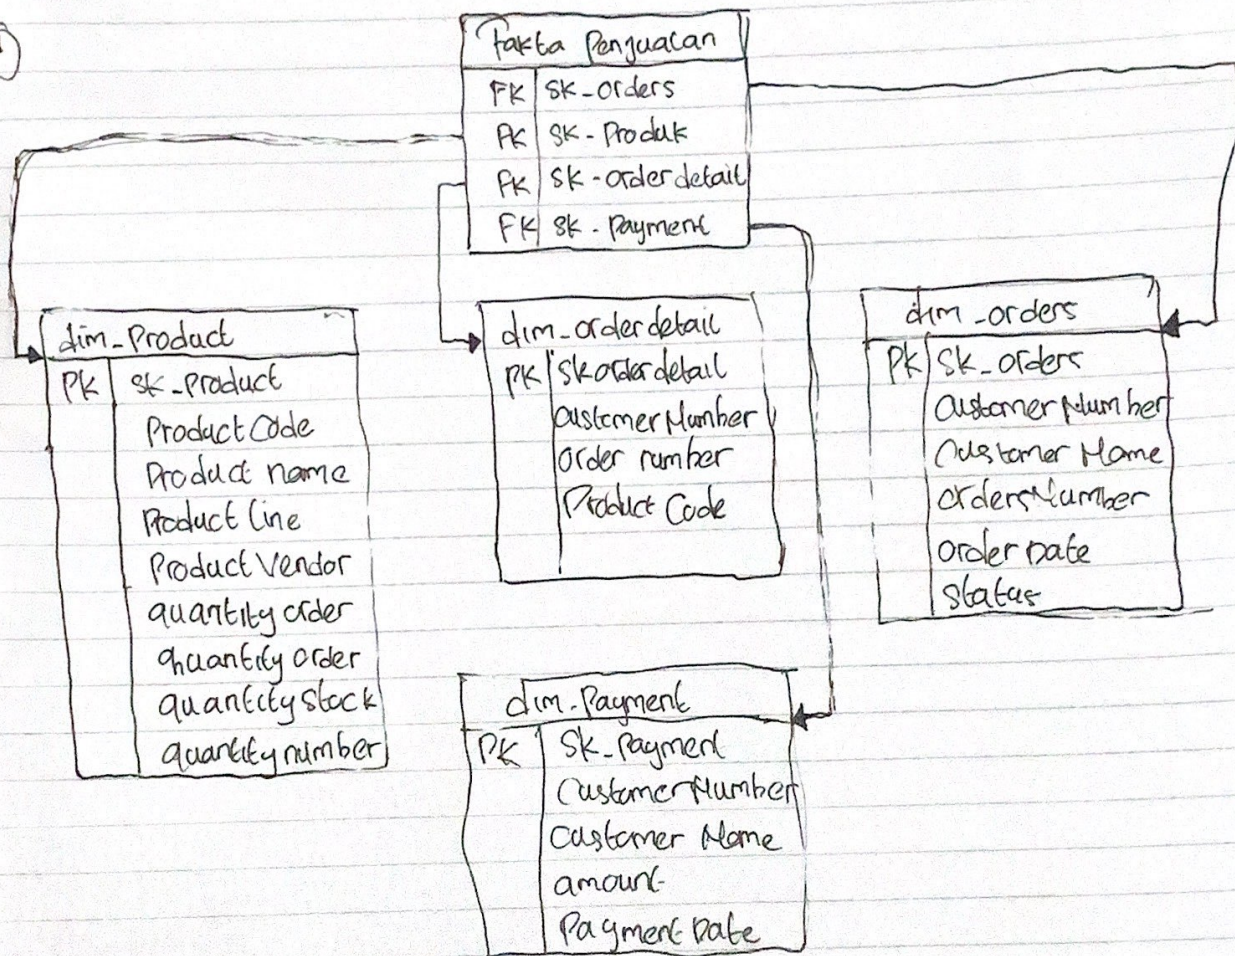 Fakta Penjualan
FK SK_orders
FK SK-Produk
FK SK-orderdetail
FK SK-Payment
dim_Product
PK SK_Product
ProductCode
Product name
Product Line
Product Vendor
quantity order
qhuantity order
quantity Stock
quantity number
dim_orderdetail
PK SKorderdetail
CustomerNumber
Order number
Product Code
dim_orders
PK SK_orders
CustomerNumber
Customer Name
ordersNumber
order Date
Status
dim_Payment
PK SK_Payment
CustomerNumber
Customer Name
amount
Payment Date